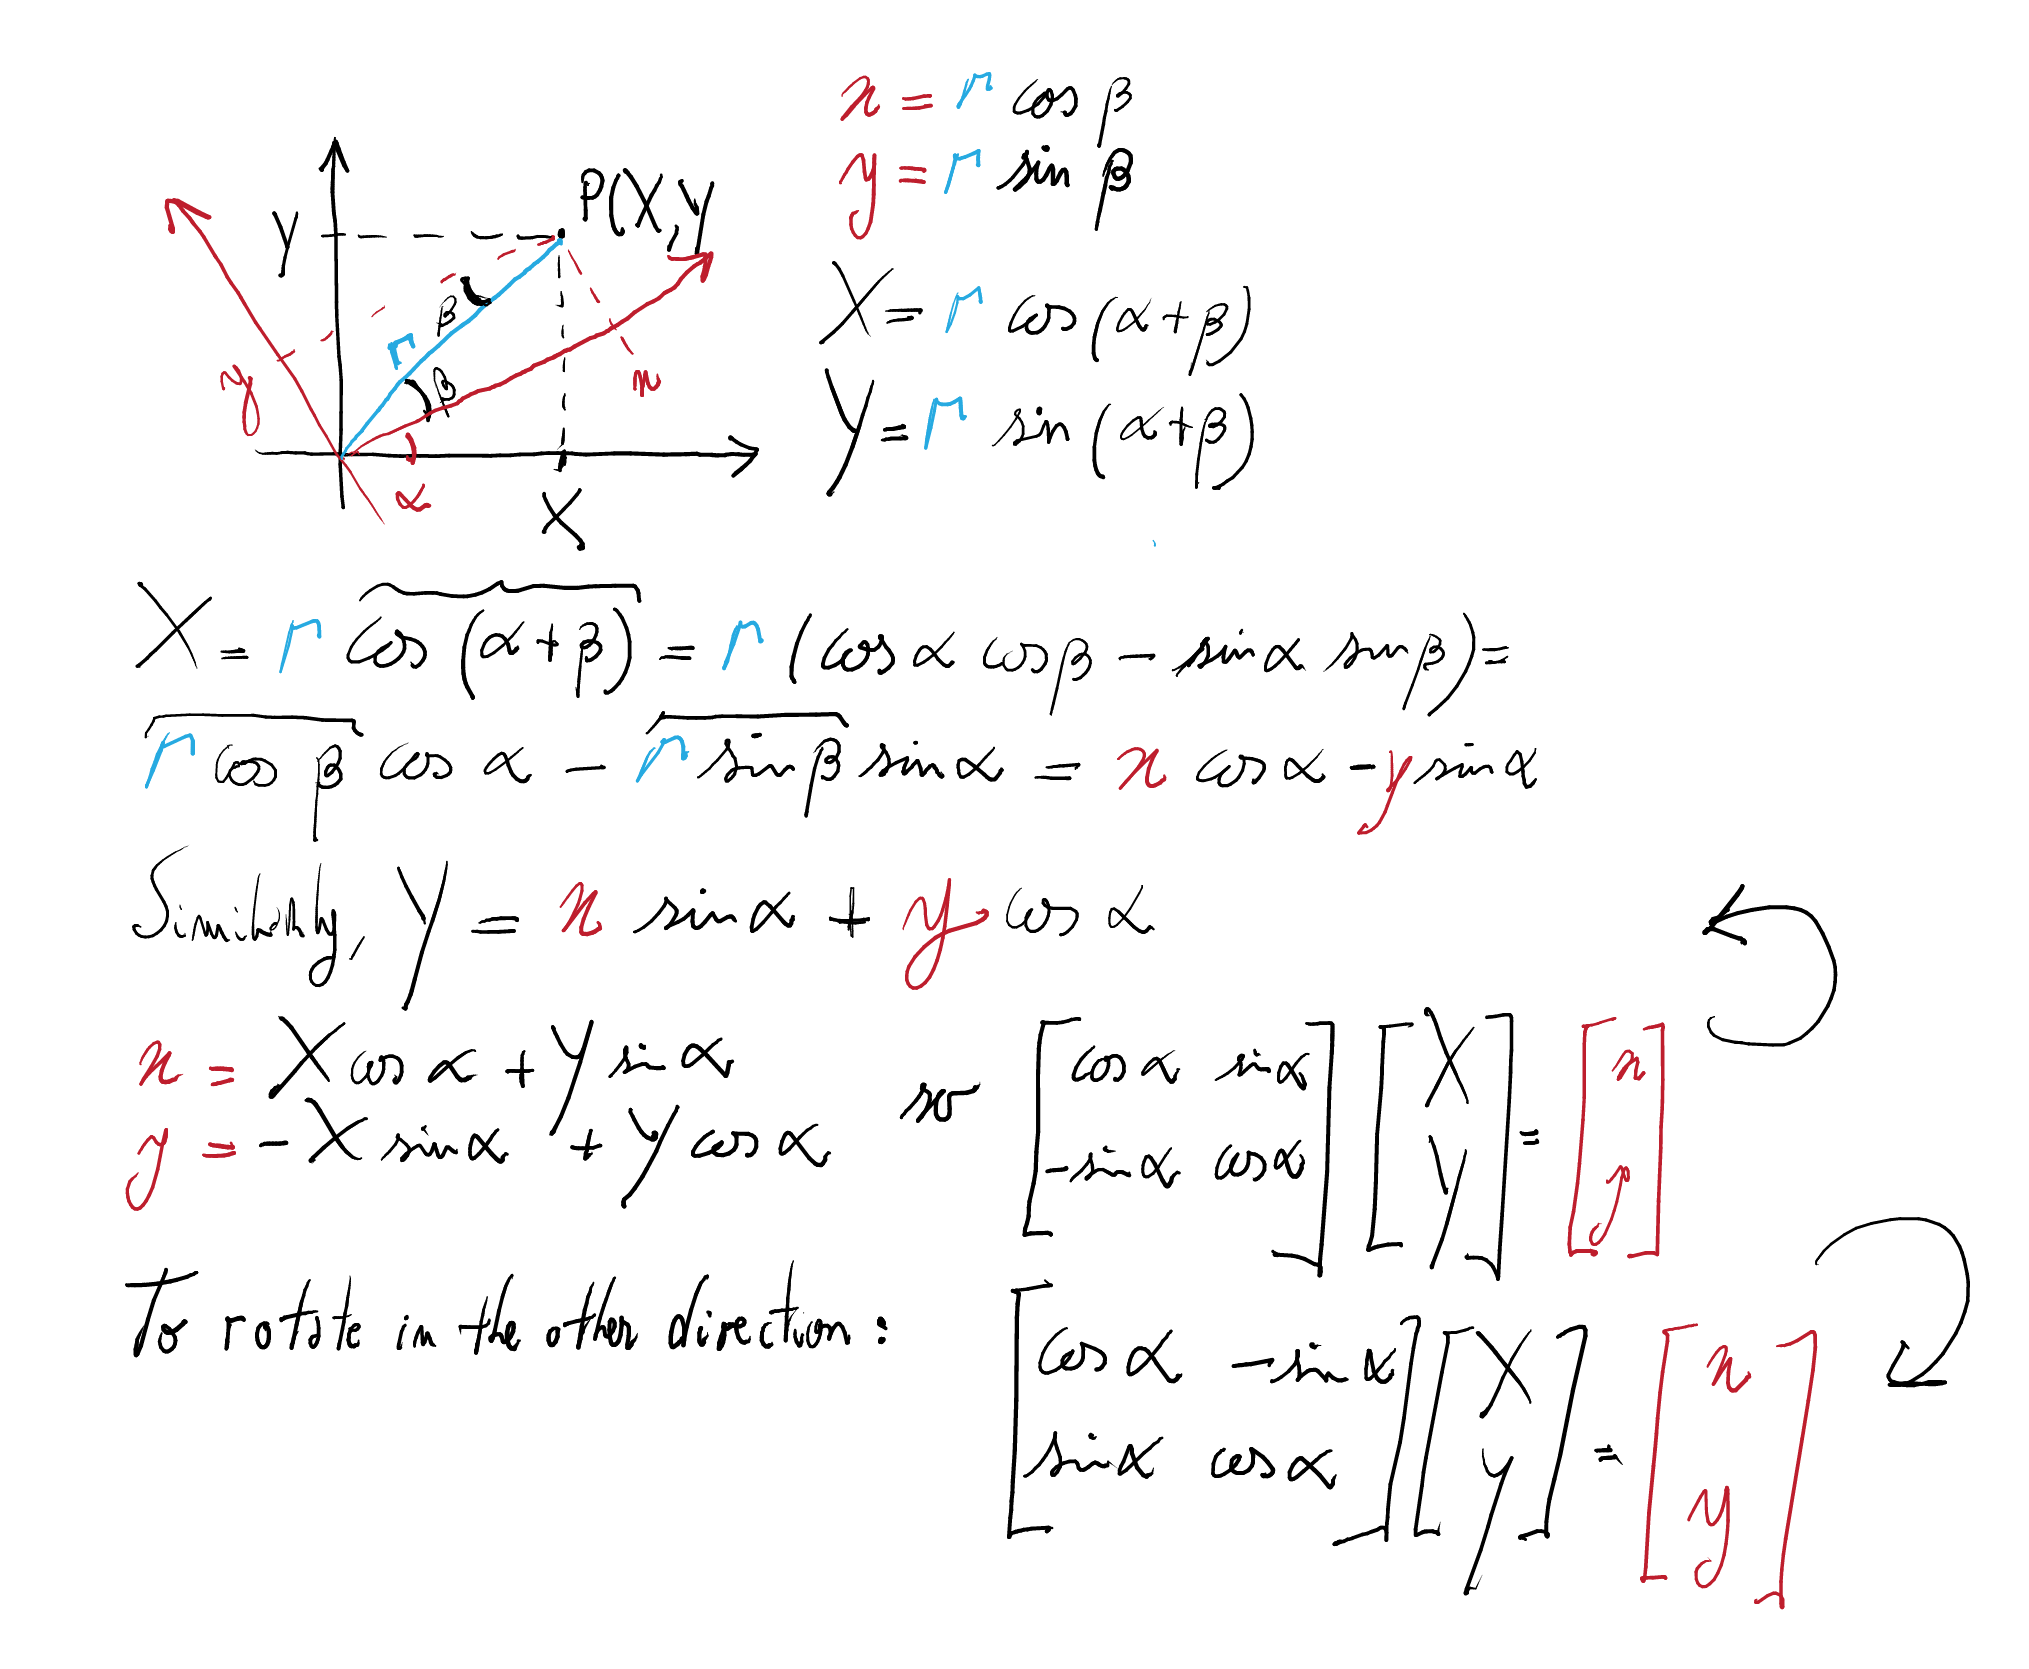 x = r cos β
y = r sin β
P(X,Y
Y
β
r
β
y
x
α
X
X = r cos (α+β)
Y = r sin (α+β)
X = r cos (α+β) = r (cos α cos β − sin α sin β) =
r cos β cos α − r sin β sin α = x cos α − y sin α
Similarly, Y = x sin α + y cos α
x = X cos α + Y sin α
y = − X sin α + Y cos α
so
[cos α sin α] [X] = [x]
[−sin α cos α] [Y] [y]
To rotate in the other direction:
[cos α −sin α] [X] = [x]
[sin α cos α] [Y] [y]